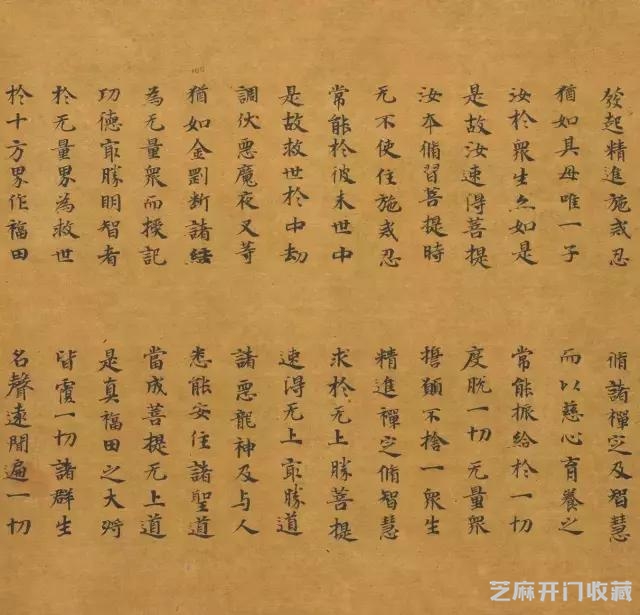 發起精進施戒忍 脩諸禪定及智慧
猶如其母唯一子 而以慈心育養之
汝於衆生亦如是 常能振給於一切
是故汝速得菩提 度脫一切无量衆
汝本脩習菩提時 願不捨一衆生
无不使住施戒忍 精進禪定脩智慧
常能於彼末世中 求於无上勝菩提
是故救世於中劫 速得无上最勝道
調伏惡魔夜叉等 諸惡龍神及与人
猶如金剛斷諸結 悉能安住諸聖道
為无量衆而授記 當成菩提无上道
功德最勝明智者 是真福田之大將
於无量界為救世 皆覆一切諸群生
於十方界作福田 名聲遠聞遍一切
芝麻开门收藏